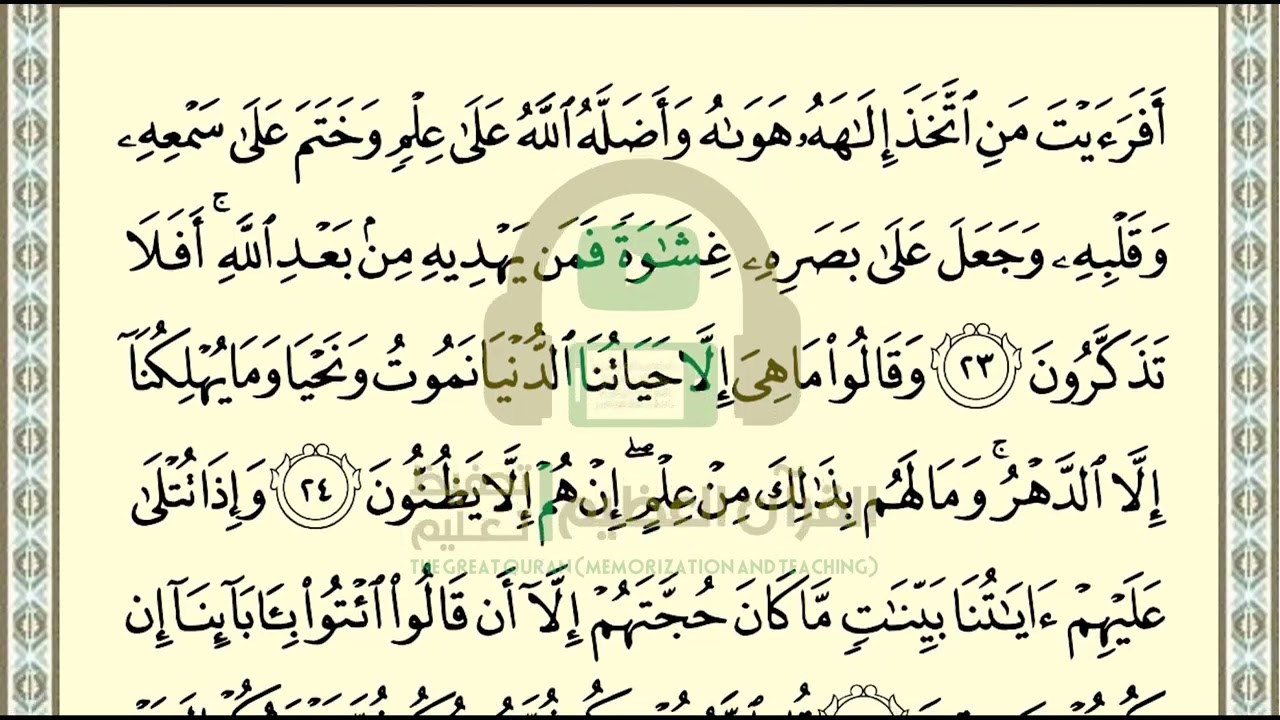 أَفَرَءَيْتَ مَنِ ٱتَّخَذَ إِلَٰهَهُۥ هَوَىٰهُ وَأَضَلَّهُ ٱللَّهُ عَلَىٰ عِلْمٍ وَخَتَمَ عَلَىٰ سَمْعِهِۦ
وَقَلْبِهِۦ وَجَعَلَ عَلَىٰ بَصَرِهِۦ غِشَٰوَةً فَمَن يَهْدِيهِ مِنۢ بَعْدِ ٱللَّهِ ۚ أَفَلَا
تَذَكَّرُونَ ٢٣ وَقَالُوا۟ مَا هِىَ إِلَّا حَيَاتُنَا ٱلدُّنْيَا نَمُوتُ وَنَحْيَا وَمَا يُهْلِكُنَآ
إِلَّا ٱلدَّهْرُ ۚ وَمَا لَهُم بِذَٰلِكَ مِنْ عِلْمٍ ۖ إِنْ هُمْ إِلَّا يَظُنُّونَ ٢٤ وَإِذَا تُتْلَىٰ
القرآن العظيم تحفيظ تعليم
THE GREAT QURAN (MEMORIZATION AND TEACHING)
عَلَيْهِمْ ءَايَٰتُنَا بَيِّنَٰتٍ مَّا كَانَ حُجَّتَهُمْ إِلَّآ أَن قَالُوا۟ ٱئْتُوا۟ بِـَٔابَآئِنَآ إِن